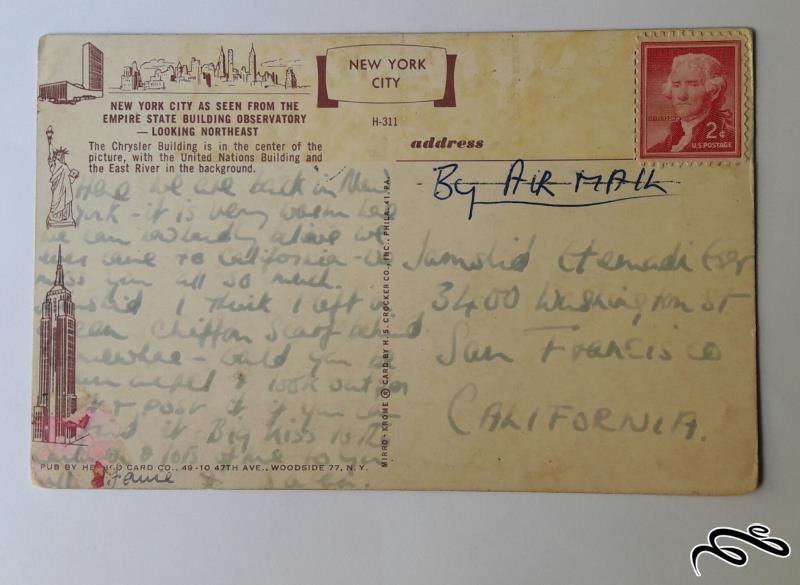 NEW YORK
CITY
NEW YORK CITY AS SEEN FROM THE
EMPIRE STATE BUILDING OBSERVATORY
— LOOKING NORTHEAST
The Chrysler Building is in the center of the
picture, with the United Nations Building and
the East River in the background.
H-311
address
2¢
U.S. POSTAGE
By AIR MAIL
Here we are back in New
York - it is very warm here
we can
came to California - We
miss you all so much.
I think I left a
Green Chiffon Scarf behind
somewhere - Could you be
& look out for
it & post it if you can
find it. Big kiss to the
& lots of to you
Jamshid Etemadi Esq
3400 Washington St
San Francisco
CALIFORNIA.
MIRRO-KROME ® CARD BY H. S. CROCKER CO., INC., PHILA. 41, PA.
PUB BY CARD CO., 49-10 47TH AVE., WOODSIDE 77, N. Y.